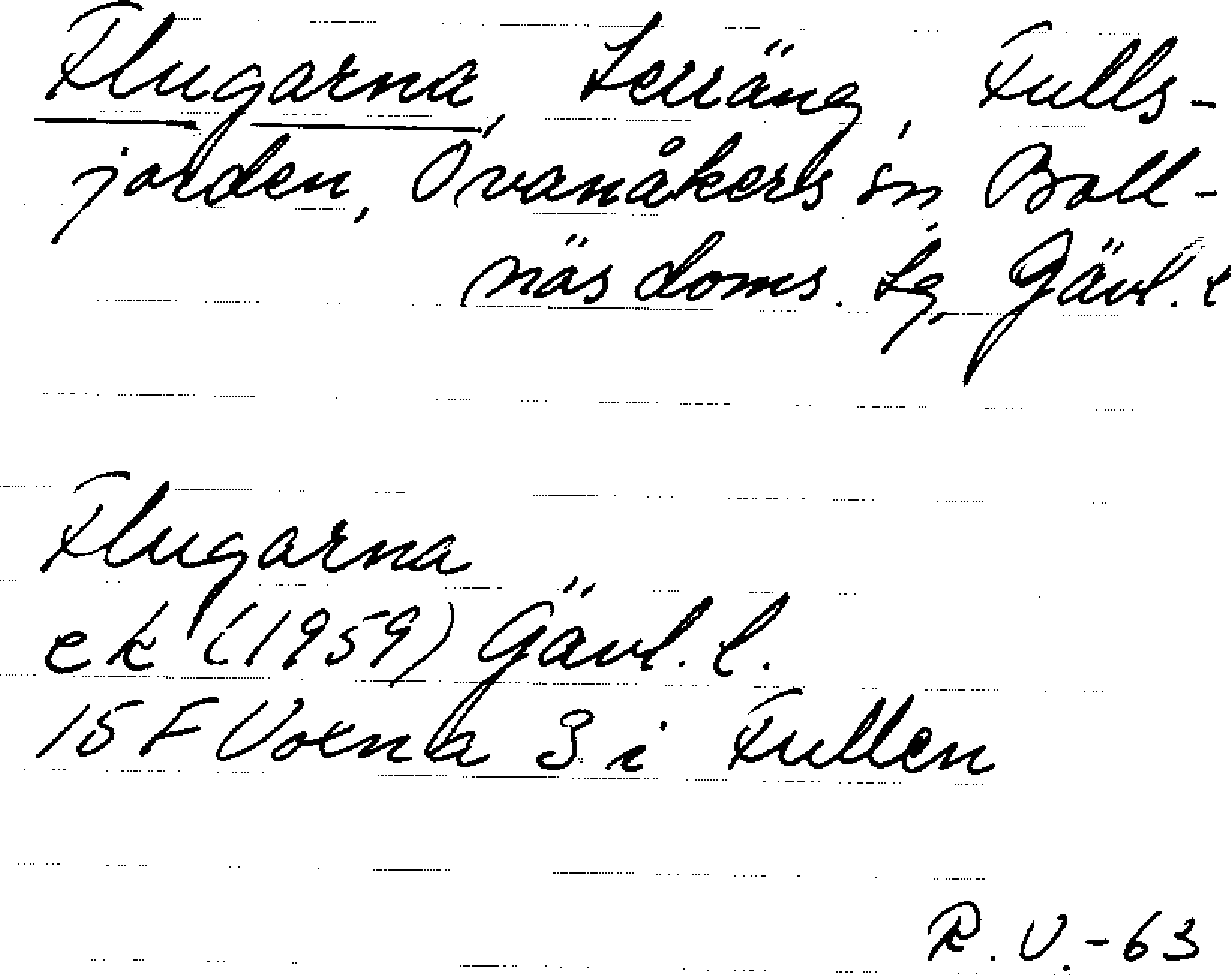 Flugarna, terräng, Fulls-
jorden, Ovanåkers sn, Boll-
näs doms. tg, Gävl. l
Flugarna
ek (1959) Gävl. l.
15 F Voxna 3 i Fullen
R. V. -63